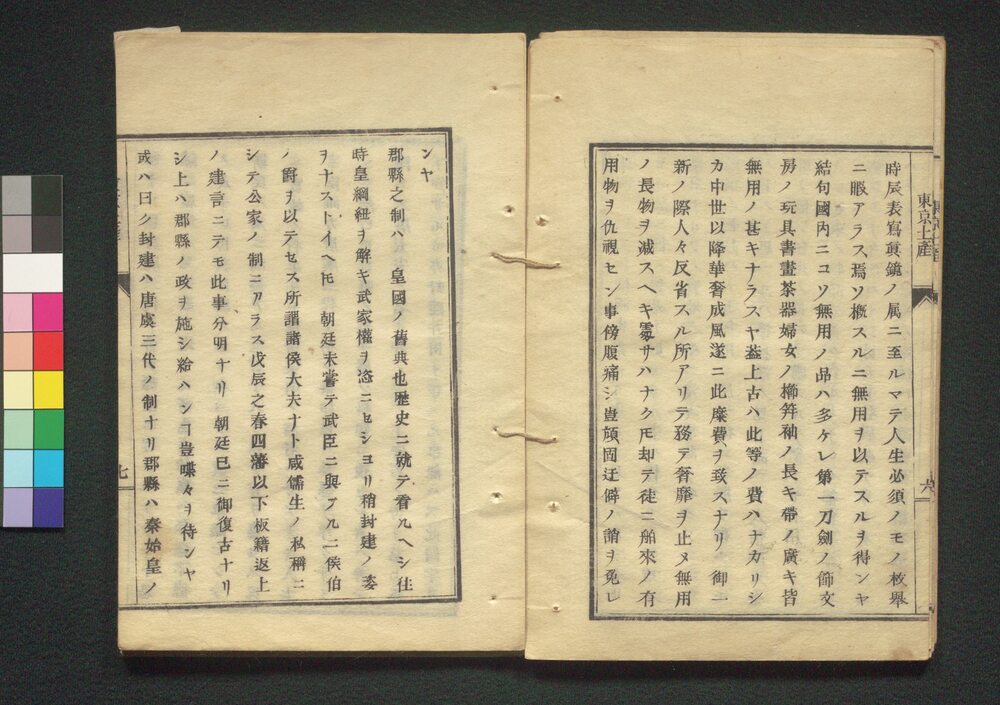 東京土産
六
時辰表寫眞鏡ノ属ニ至ルマテ人生必須ノモノ枚擧
ニ暇アラス焉ソ概スルニ無用ヲ以テスルヲ得ンヤ
結句國内ニコソ無用ノ品ハ多ケレ第一刀劍ノ飾文
房ノ玩具書畫茶器婦女ノ櫛笄袖ノ長キ帶ノ廣キ皆
無用ノ甚キナラスヤ葢上古ハ此等ノ費ハナカリシ
カ中世以降華奢成風遂ニ此糜費ヲ致スナリ 御一
新ノ際人々反省スル所アリテ務テ奢靡ヲ止メ無用
ノ長物ヲ減スヘキ事サハナクモ却テ徒ニ舶來ノ有
用物ヲ仇視セン事傍腹痛シ豈頑固迂僻ノ誚ヲ免レ
ンヤ
郡縣之制ハ 皇國ノ舊典也歴史ニ就テ看ルヘシ往
時皇綱紐ヲ解キ武家權ヲ恣ニセシヨリ稍封建ノ姿
ヲナストイヘㇳモ 朝廷未嘗テ武臣ニ與フルニ侯伯
ノ爵ヲ以テセス所謂諸侯大夫ナト咸儒生ノ私稱ニ
シテ公家ノ制ニアラス戊辰之春四藩以下板籍返上
ノ建言ニテモ此事分明ナリ 朝廷已ニ御復古ナリ
シ上ハ郡縣ノ政ヲ施シ給ハンヿ豈喋々ヲ待ンヤ
或ハ曰ク封建ハ唐虞三代ノ制ナリ郡縣ハ秦始皇ノ
七